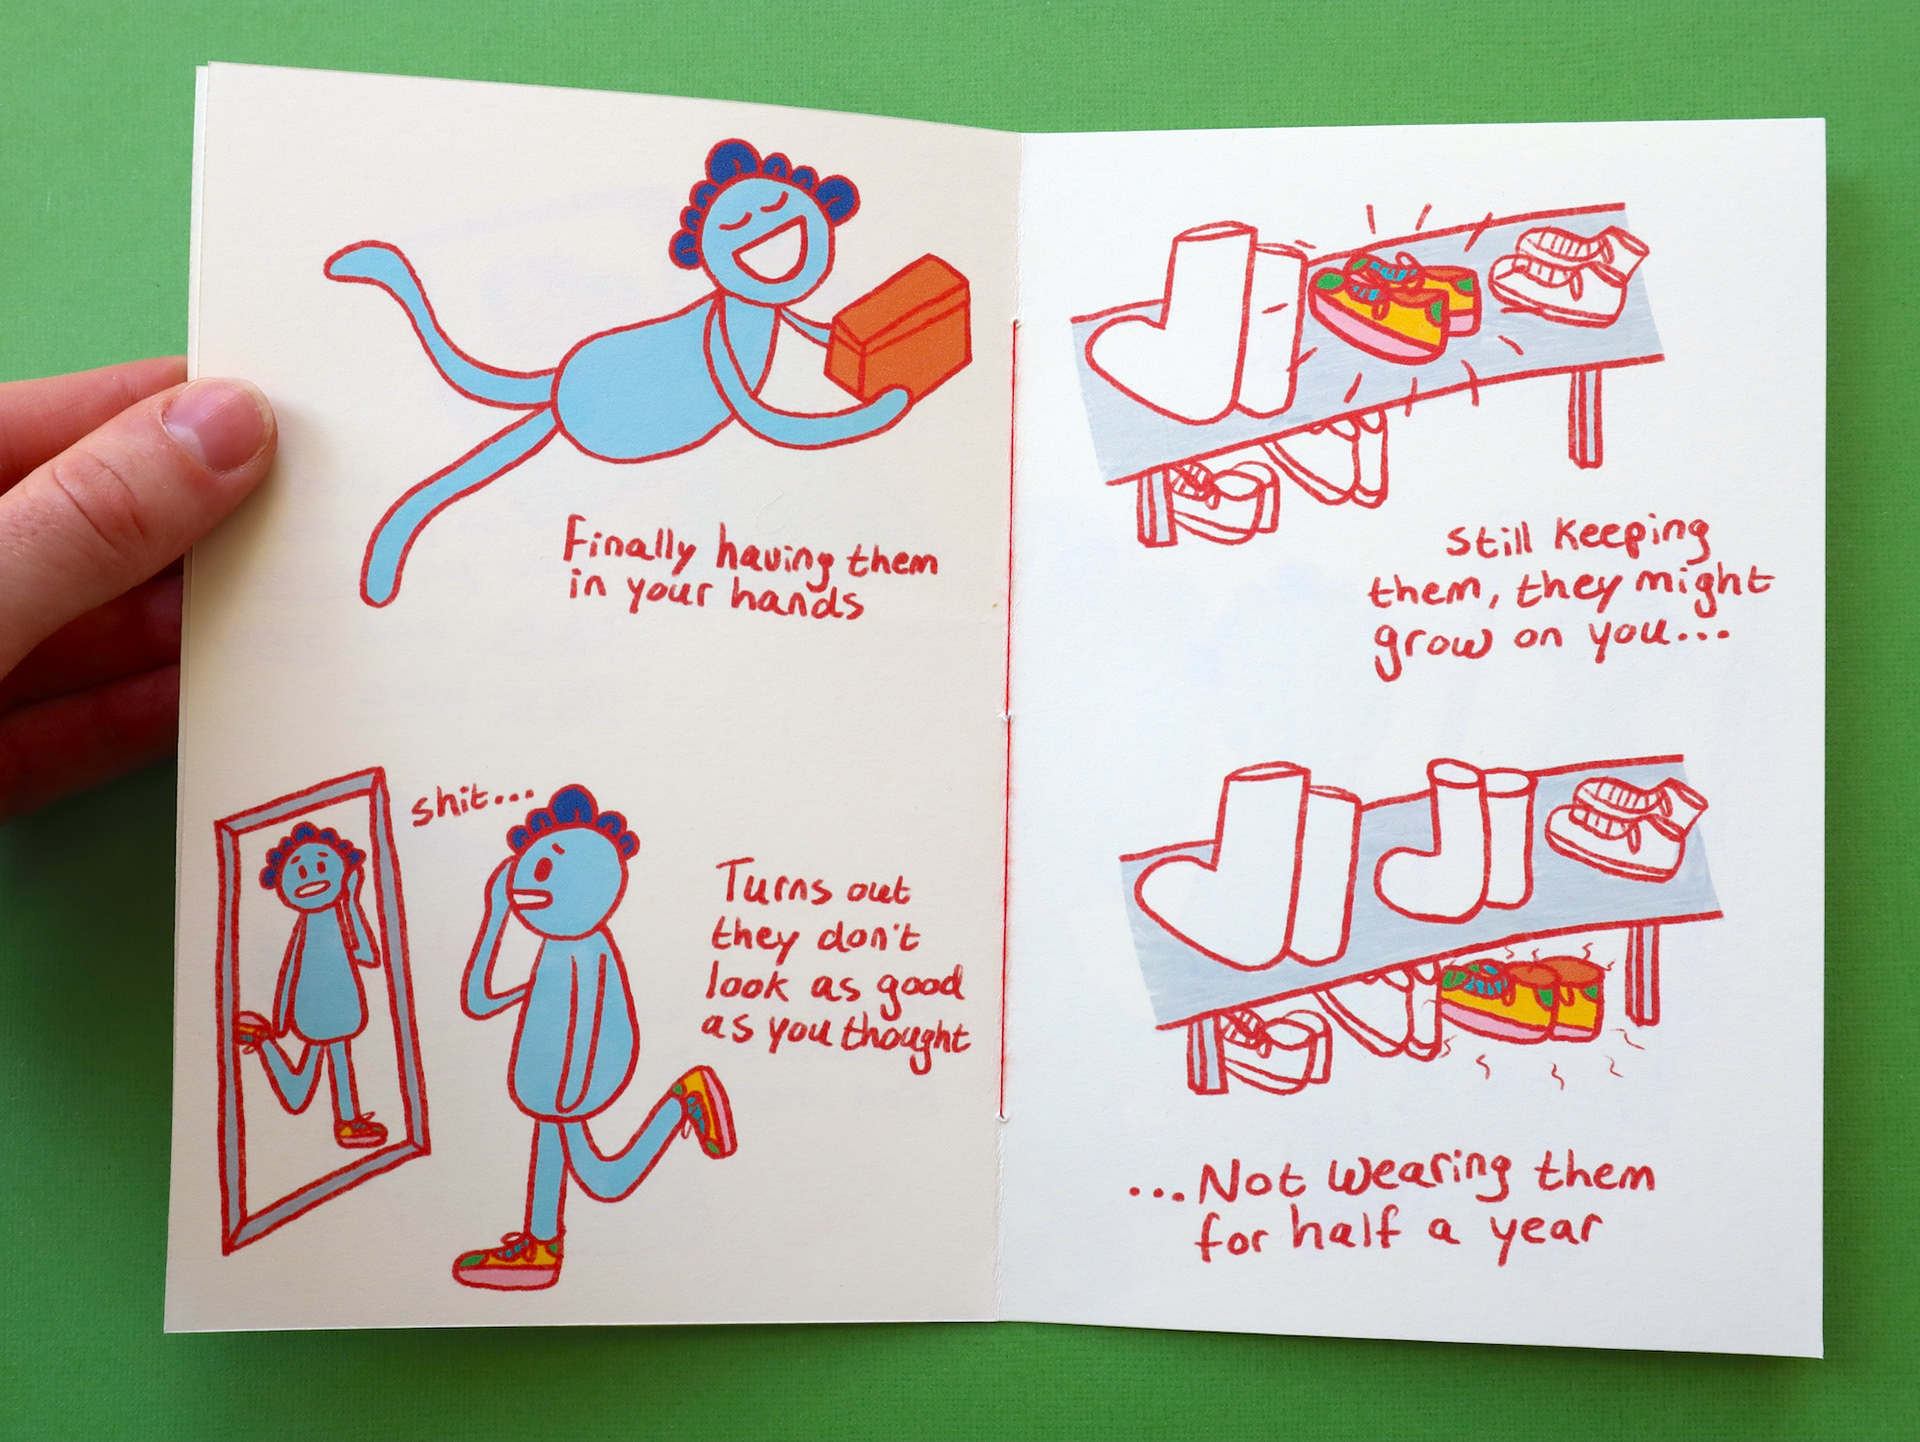 Finally having them
in your hands
shit...
Turns out
they don't
look as good
as you thought
Still keeping
them, they might
grow on you...
...Not wearing them
for half a year